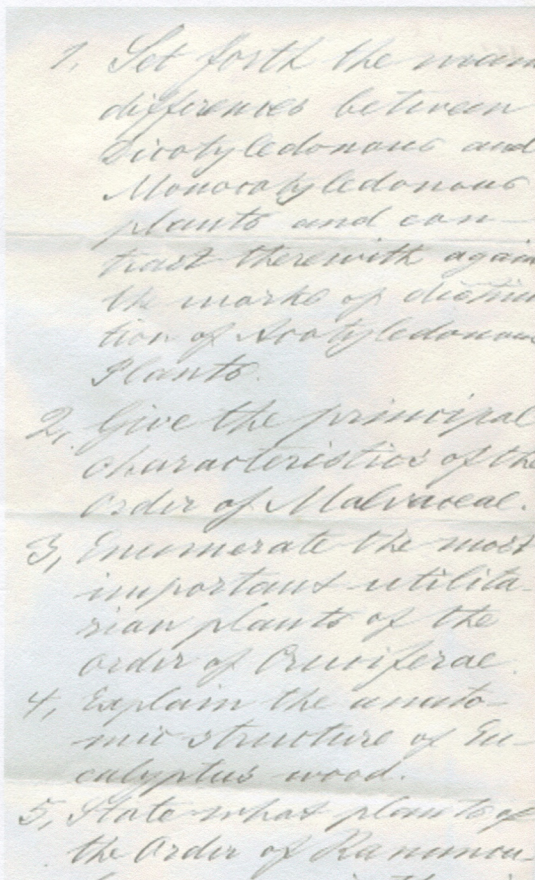 1. Set forth the main
differences between
Dicotyledonous and
Monocotyledonous
plants and con-
trast therewith again
the marks of distinc
tion of Acotyledonous
Plants.
2. Give the principal
characteristics of the
Order of Malvaceae.
3, Enumerate the most
important utilita-
rian plants of the
order of Cruciferae.
4, Explain the anato-
mic structure of Eu-
calyptus wood.
5, State what plants of
the Order of Ranuncu-